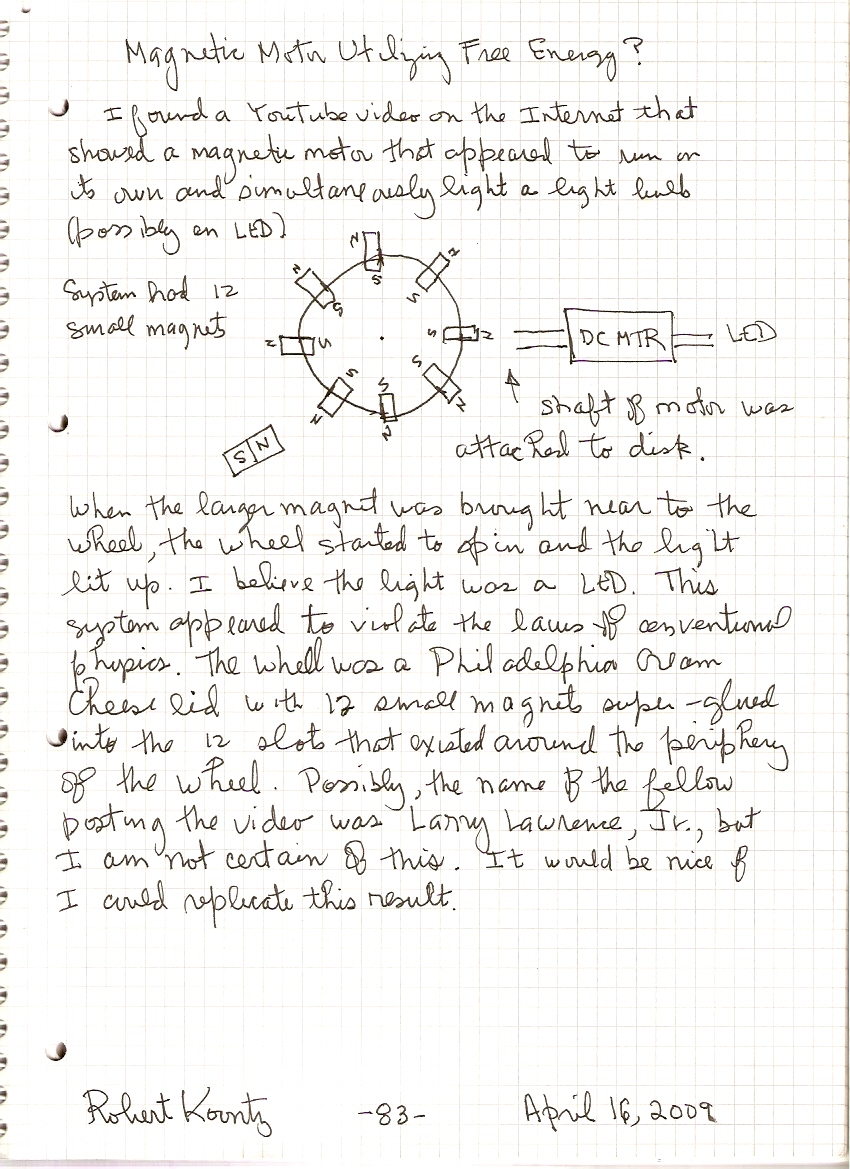 Magnetic Motor Utilizing Free Energy?
I found a YouTube video on the Internet that
showed a magnetic motor that appeared to run on
its own and simultaneously light a light bulb
(possibly an LED)
System had 12
small magnets
N
S
N
S
N
S
N
S
S
N
S
N
S
N
S
N
DC MTR
LED
shaft of motor was
attached to disk.
S N
When the larger magnet was brought near to the
wheel, the wheel started to spin and the light
lit up. I believe the light was a LED. This
system appeared to violate the laws of conventional
physics. The whell was a Philadelphia Cream
Cheese lid with 12 small magnets super-glued
into the 12 slots that existed around the periphery
of the wheel. Possibly, the name of the fellow
posting the video was Larry Lawrence, Jr., but
I am not certain of this. It would be nice if
I could replicate this result.
Robert Koontz -83- April 16, 2009